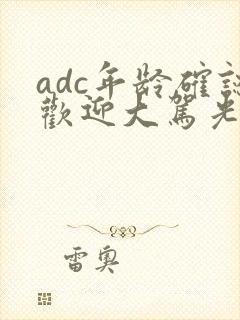 adc年龄確認
歡迎大駕光
雷奧